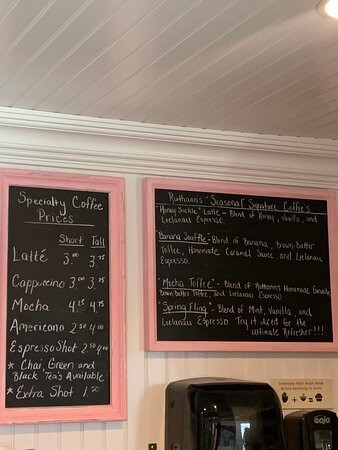 Specialty Coffee
Prices
Short Tall
Latté 3.00 3.75
Cappuccino 3.00 3.75
Mocha 4.25 4.75
Americano 2.50 4.00
Espresso Shot 2.50 4.00
* Chai, Green and
Black Tea's Available
* Extra Shot 1.50
Ruthann's "Seasonal" Signature Coffee's
"Honey Suckle" Latte - Blend of Honey, Vanilla, and
Leelanau Espresso
"Banana Souffle" - Blend of Banana, Brown-Butter
Toffee, Homemade Caramel Sauce, and Leelanau
Espresso.
"Mocha Toffee" - Blend of Ruthann's Homemade Ganache,
Brown Butter Toffee, and Leelanau Espresso
"Spring Fling" - Blend of Mint, Vanilla, and
Leelanau Espresso. Try it Iced for the
Ultimate Refresher!!!
Employees Must Wash Hands
Before Returning to Work
GOJO